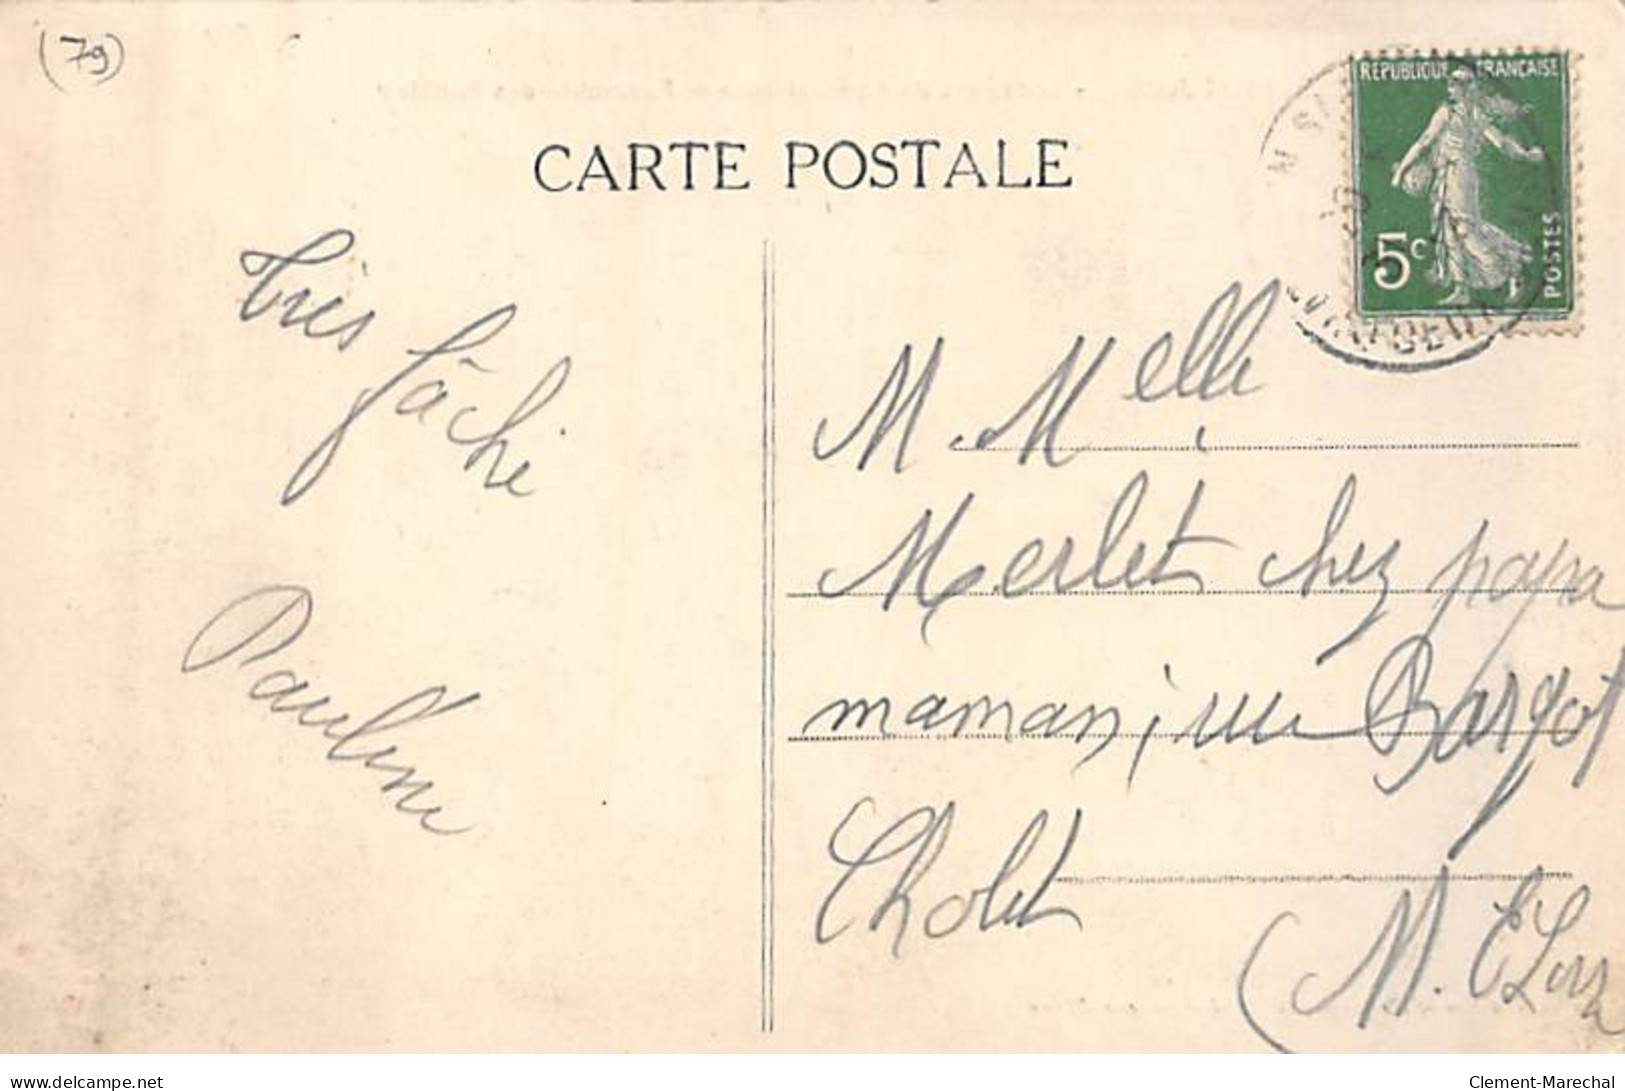 (79)
REPUBLIQUE FRANÇAISE
5c
POSTES
CARTE POSTALE
très
fâché
Pauline
M. Melle
Merlet chez papa
maman, rue Bargot
Cholet
(M. &
www.delcampe.net
Clement-Marechal